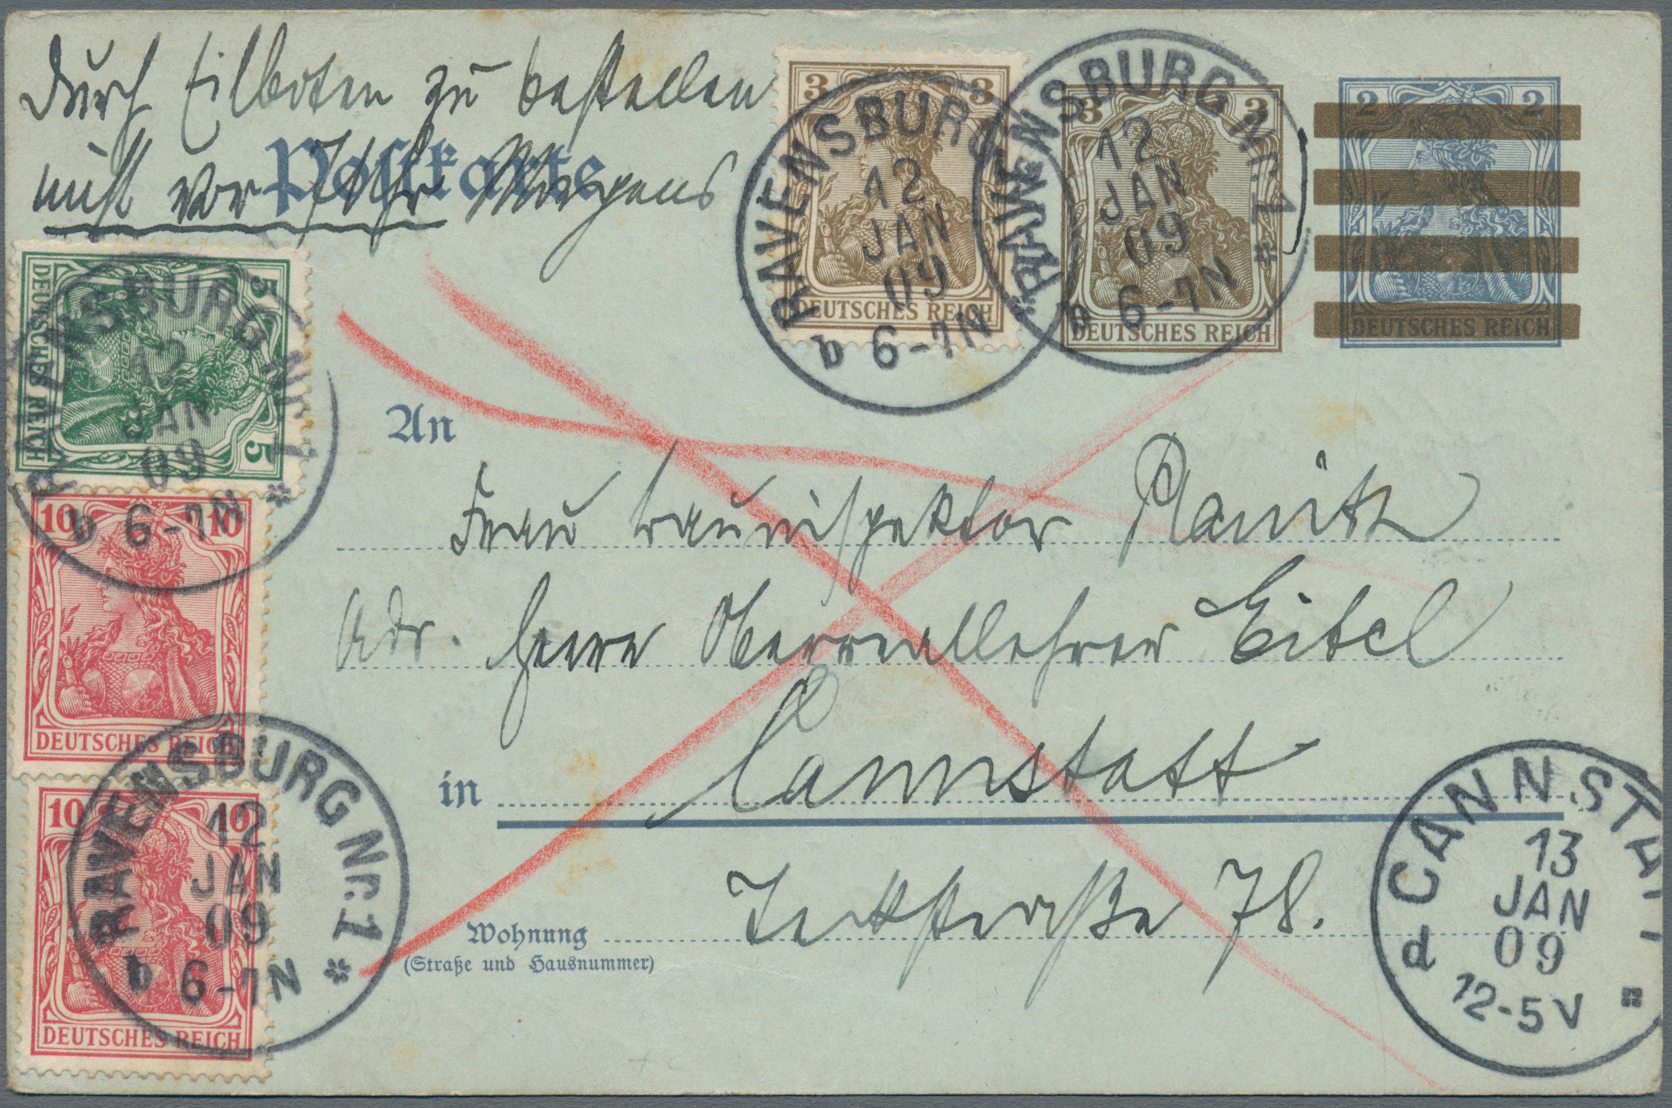 Durch Eilboten zu bestellen
nicht vor 7 Uhr Morgens
Postkarte
3 3
DEUTSCHES REICH
RAVENSBURG
12
JAN
09
b 6-7N
3 3
DEUTSCHES REICH
RAVENSBURG Nr. 1
12
JAN
09
b 6-7N *
2 2
DEUTSCHES REICH
5 5
DEUTSCHES REICH
RAVENSBURG Nr. 1
12
JAN
09
b 6-7N *
10 10
DEUTSCHES REICH
10 10
DEUTSCHES REICH
RAVENSBURG Nr. 1
12
JAN
09
b 6-7N *
An
Frau Bauinspektor
Adr. Herrn Oberreallehrer Eitel
in Cannstatt
Wohnung
(Straße und Hausnummer)
78.
CANNSTATT
13
JAN
09
d 12-5V